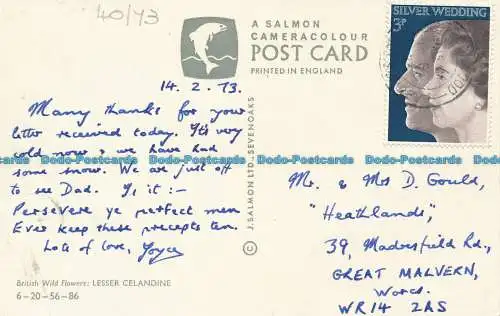 40/73
A SALMON
CAMERACOLOUR
POST CARD
PRINTED IN ENGLAND
SILVER WEDDING
3P
14.2.73.
Many thanks for your
letter received today. It's very
cold now & we have had
some snow. We are just off
to see Dad. It is :-
Persevere ye perfect men
Ever keep these precepts ten.
Lots of love, Joyce
British Wild Flowers: LESSER CELANDINE
6-20-56-86
© J. SALMON LTD., SEVENOAKS
Dodo-Postcards Dodo-Postcards Dodo-Postcards Dodo-Postcards Dodo-Postcards
Mr. & Mrs D. Gould,
"Heathlands",
39, Madresfield Rd.,
GREAT MALVERN,
Worcs.
WR14 2AS